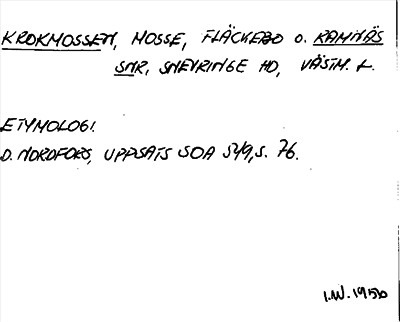 KROKMOSSEN, MOSSE, FLÄCKEBO O. RAMNÄS
SNR, SNEVRINGE HD, VÄSTM. L.
ETYMOLOGI.
D. NORDFORS, UPPSATS SOA 549, S. 76.
I.W. 1950